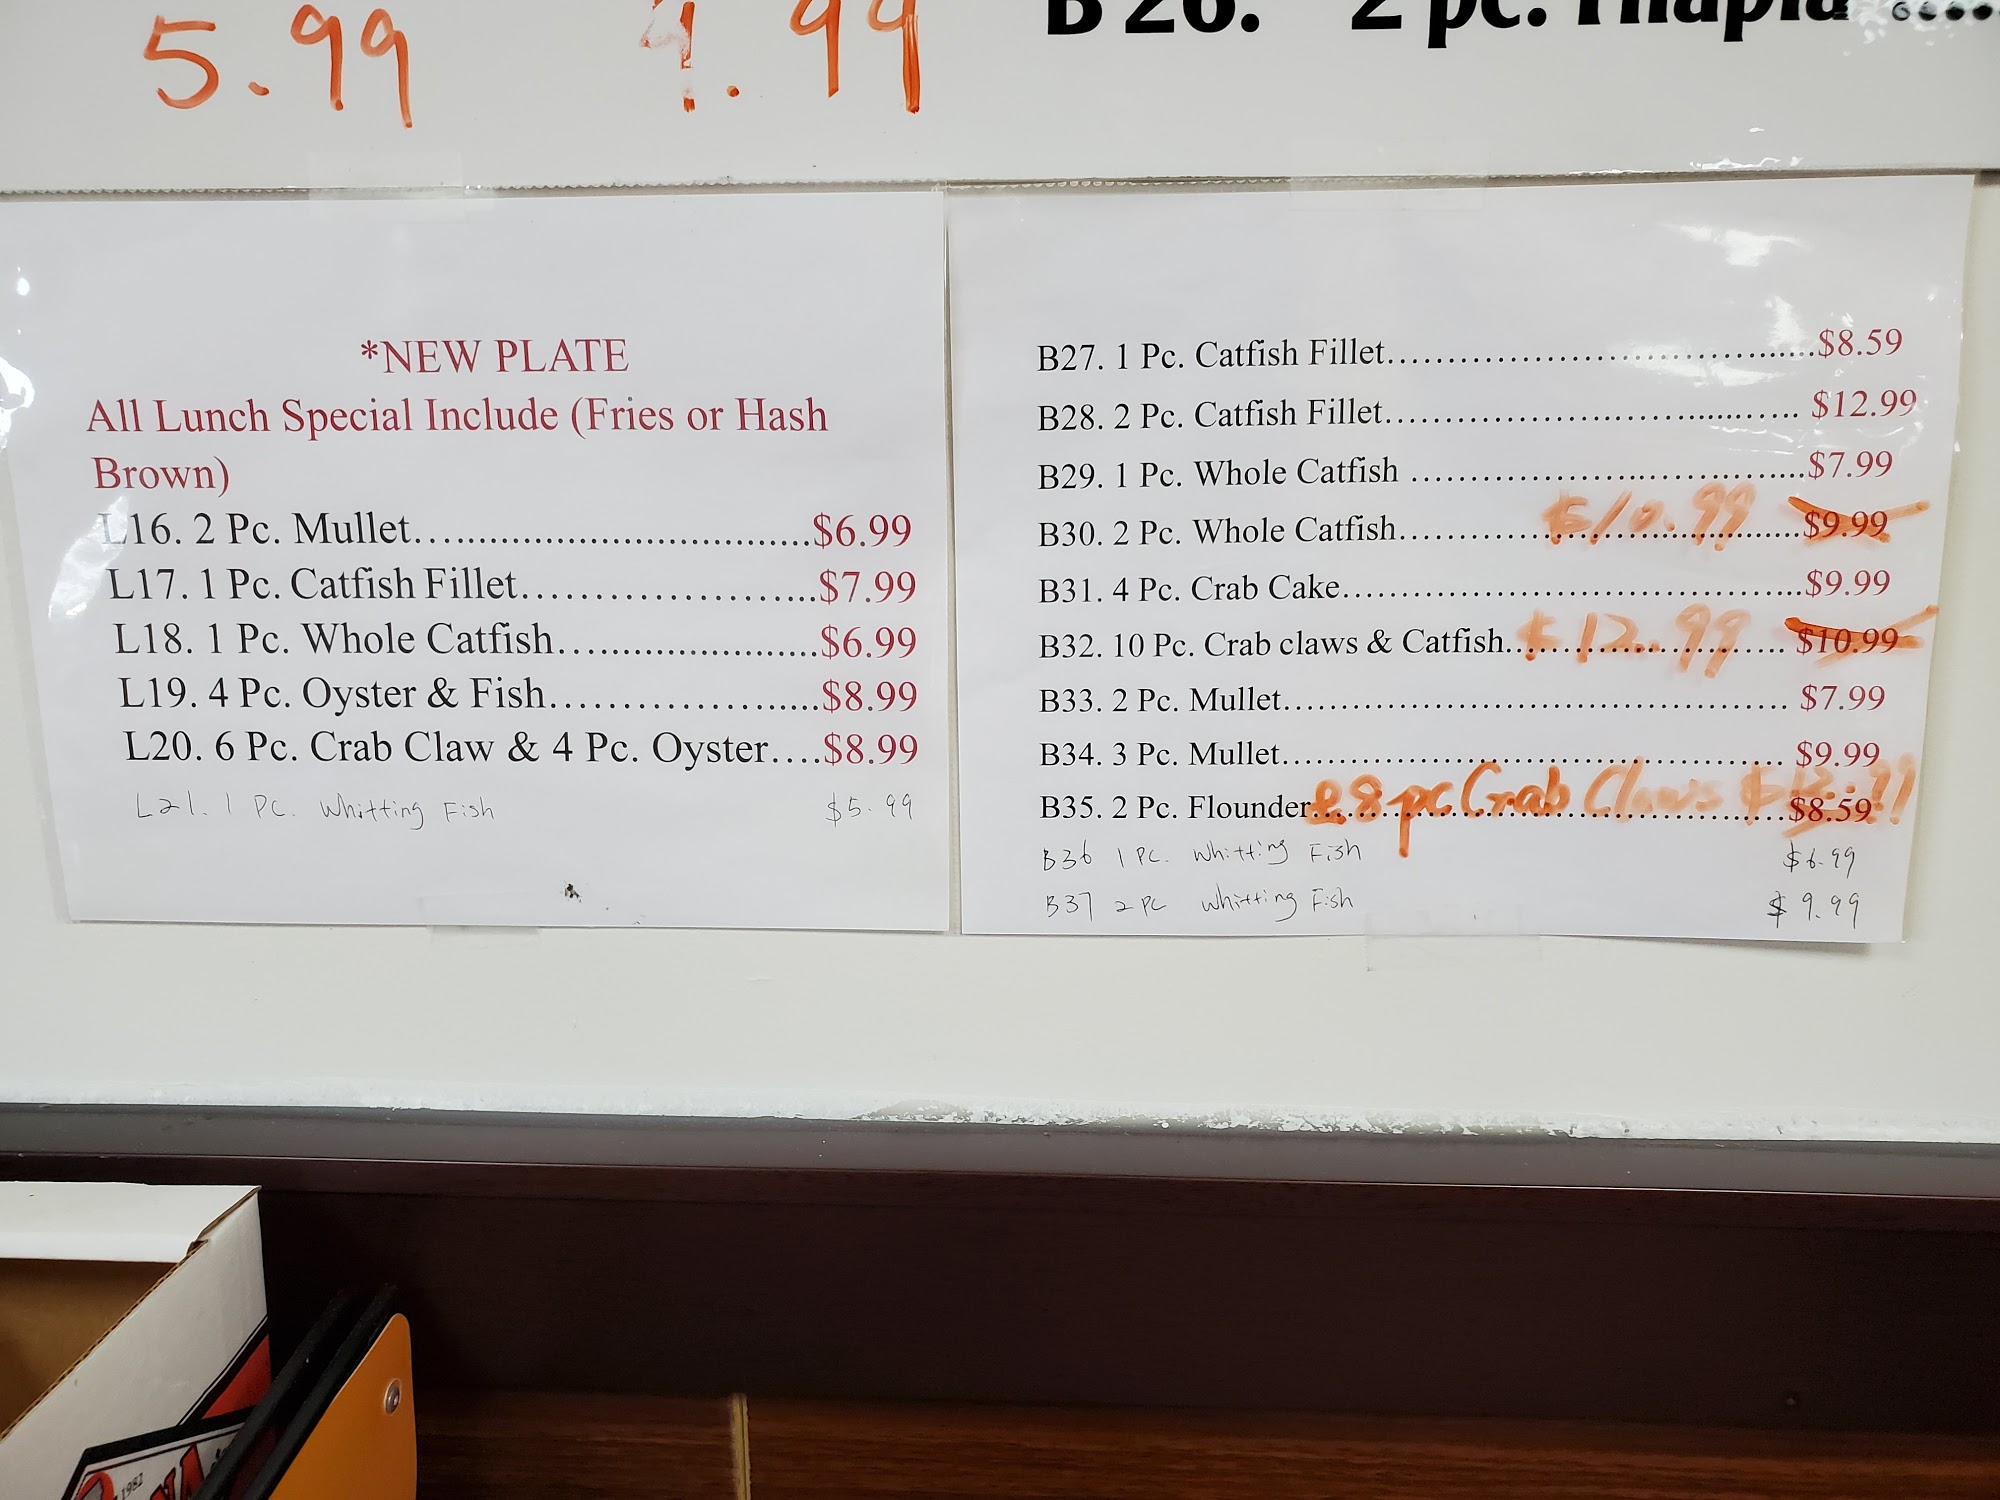 5.99
.99
B26. 2 pc.
*NEW PLATE
All Lunch Special Include (Fries or Hash
Brown)
L16. 2 Pc. Mullet....................................$6.99
L17. 1 Pc. Catfish Fillet.........................$7.99
L18. 1 Pc. Whole Catfish.........................$6.99
L19. 4 Pc. Oyster & Fish.........................$8.99
L20. 6 Pc. Crab Claw & 4 Pc. Oyster....$8.99
L21. 1 PC. Whitting Fish $5.99
B27. 1 Pc. Catfish Fillet........................................$8.59
B28. 2 Pc. Catfish Fillet........................................ $12.99
B29. 1 Pc. Whole Catfish ........................................$7.99
B30. 2 Pc. Whole Catfish........................................ $10.99 $9.99
B31. 4 Pc. Crab Cake........................................$9.99
B32. 10 Pc. Crab claws & Catfish........................ $12.99 $10.99
B33. 2 Pc. Mullet........................................ $7.99
B34. 3 Pc. Mullet........................................ $9.99
B35. 2 Pc. Flounder & 8 pc Crab Claws ........................$8.59
B36 1 PC. Whitting Fish $6.99
B37 2 PC Whitting Fish $9.99
1982